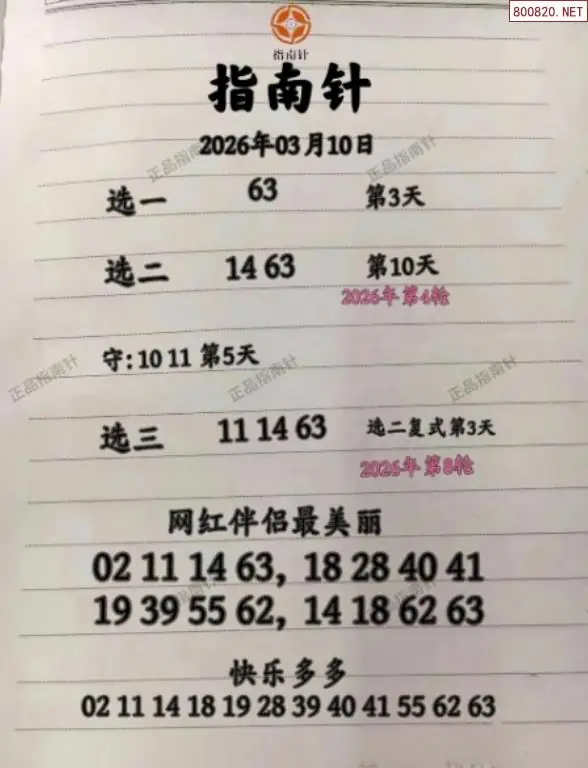 800820.NET
指南针
指南针
2026年03月10日
正品指南针 正品指南针
选一 63 第3天
选二 14 63 第10天
2026年第4轮
守: 10 11 第5天
正品指南针 正品指南针 正品指南针
选三 11 14 63 选二复式第3天
2026年第8轮
网红伴侣最美丽
02 11 14 63, 18 28 40 41
正品指南针 正品指南针
19 39 55 62, 14 18 62 63
快乐多多
02 11 14 18 19 28 39 40 41 55 62 63